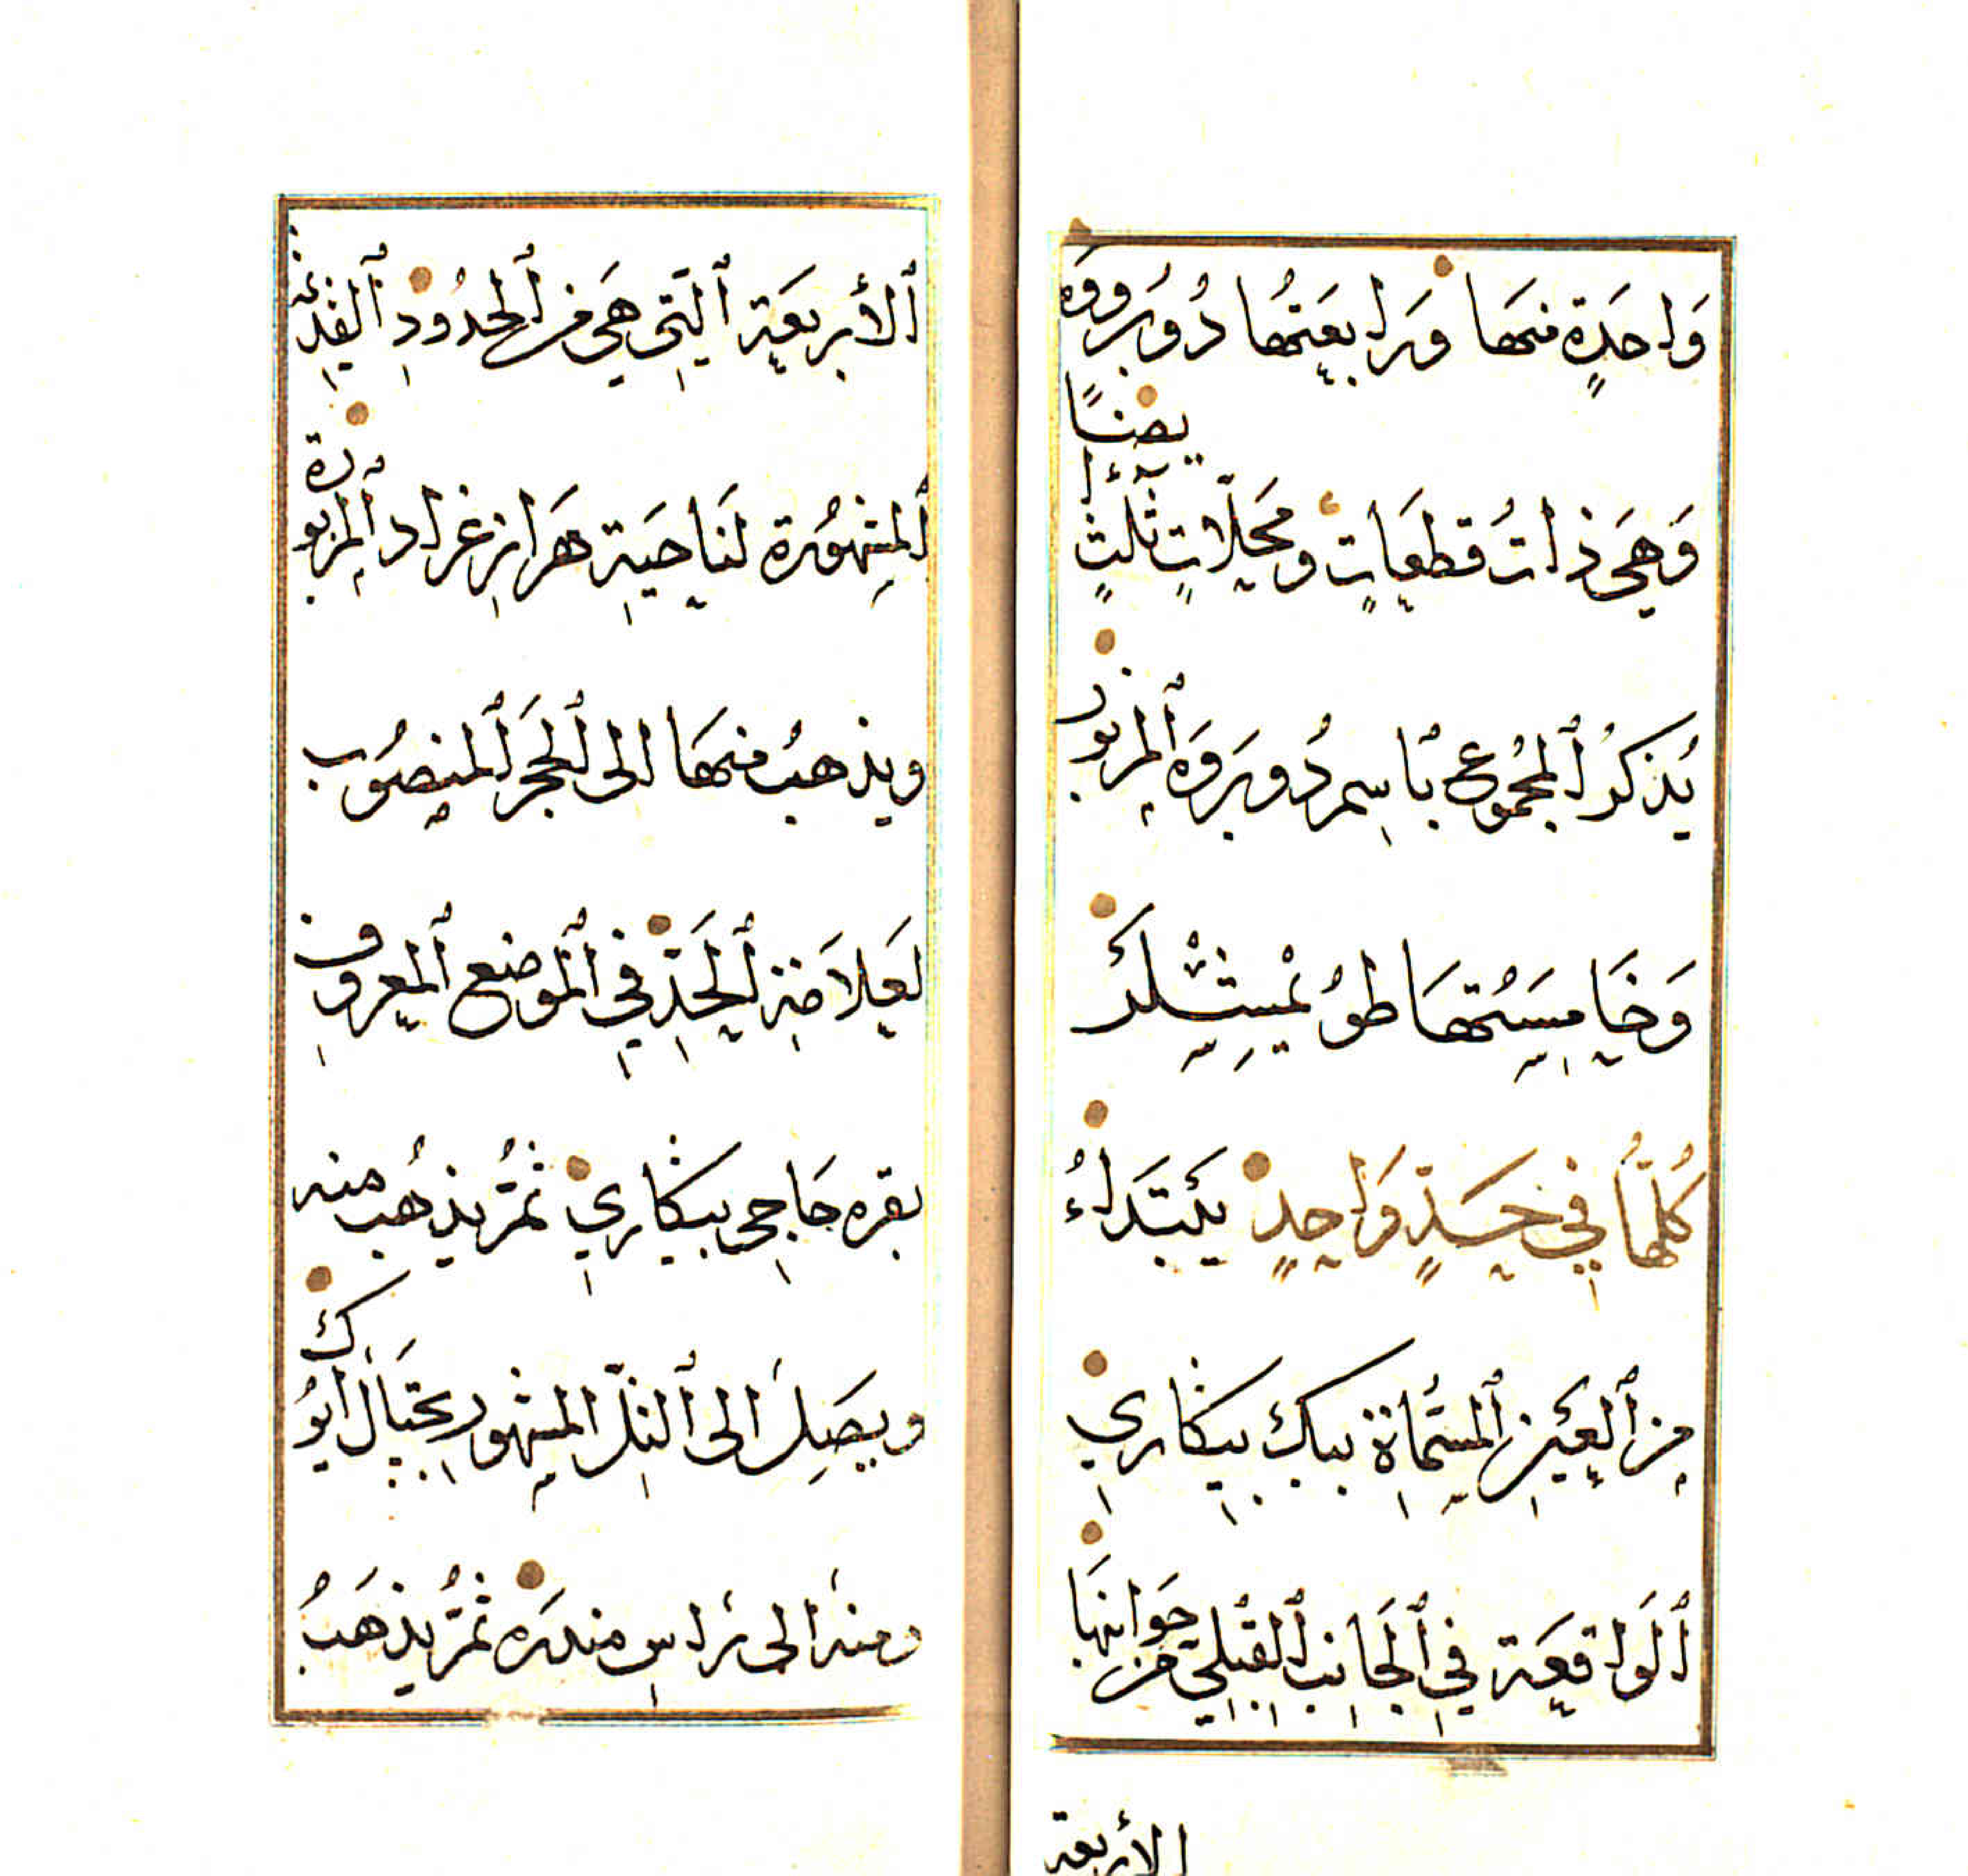 وَاحَدةٍ منهَا وَرابعَتهُا دُوبَروَه
وَهيَ ذاتُ قطعَاتٍ ومحَلّاتٍ ثَلثٍ أيضًا
يُذكرُ ٱلمجمُوع بٱسمِ دُوبَروَه ٱلمزبور
وَخَامسَتُهَا طوُيمشلكَ
كُلّهَا في حَدٍّ وَاحدٍ يَبتَداءُ
مِن ٱلعَين ٱلمسَمّاة ببك بيكاري
ٱلوَاقعَة في ٱلجَانب ٱلقبْلي من جَوانبهَا
الأربعة
ٱلأربعَة ٱلتي هيَ من ٱلحدُودِ ٱلقديمة
ٱلمشهُورة لنَاحيَة هَزارغراد ٱلمزبورة
ويذهبُ منهَا الى ٱلحجَر ٱلمنصُوب
لعَلامَة ٱلحَدّ في ٱلموضع ٱلمعروف
بقره حَاجي بيكاري ثمُّ يذهُب منه
ويصَل الى ٱلتلّ المشهور بجتَال ايوُك
ومنه الى رَاس مندرَه ثمُّ يذهَبُ